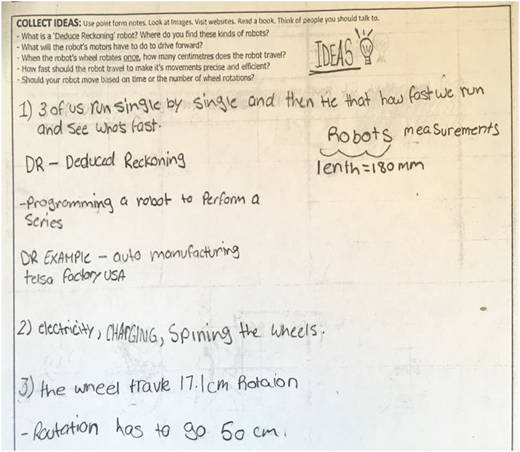 COLLECT IDEAS: Use point form notes. Look at Images. Visit websites. Read a book. Think of people you should talk to.
- What is a 'Deduce Reckoning' robot? Where do you find these kinds of robots?
- What will the robot's motors have to do to drive forward?
- When the robot's wheel rotates once, how many centimetres does the robot travel?
- How fast should the robot travel to make it's movements precise and efficient?
- Should your robot move based on time or the number of wheel rotations?
IDEAS
1) 3 of us run single by single and then tie that how fast we run
and see who's fast.
Robots measurements
lenth=180mm
DR - Deduced Reckoning
-Programming a robot to Perform a
Series
DR EXAMPLE - auto manufacturing
telsa factory USA
2) electricity, CHARGING, Spining the wheels.
3) the wheel travle 17.1cm Rotaion
- Routation has to go 50 cm.